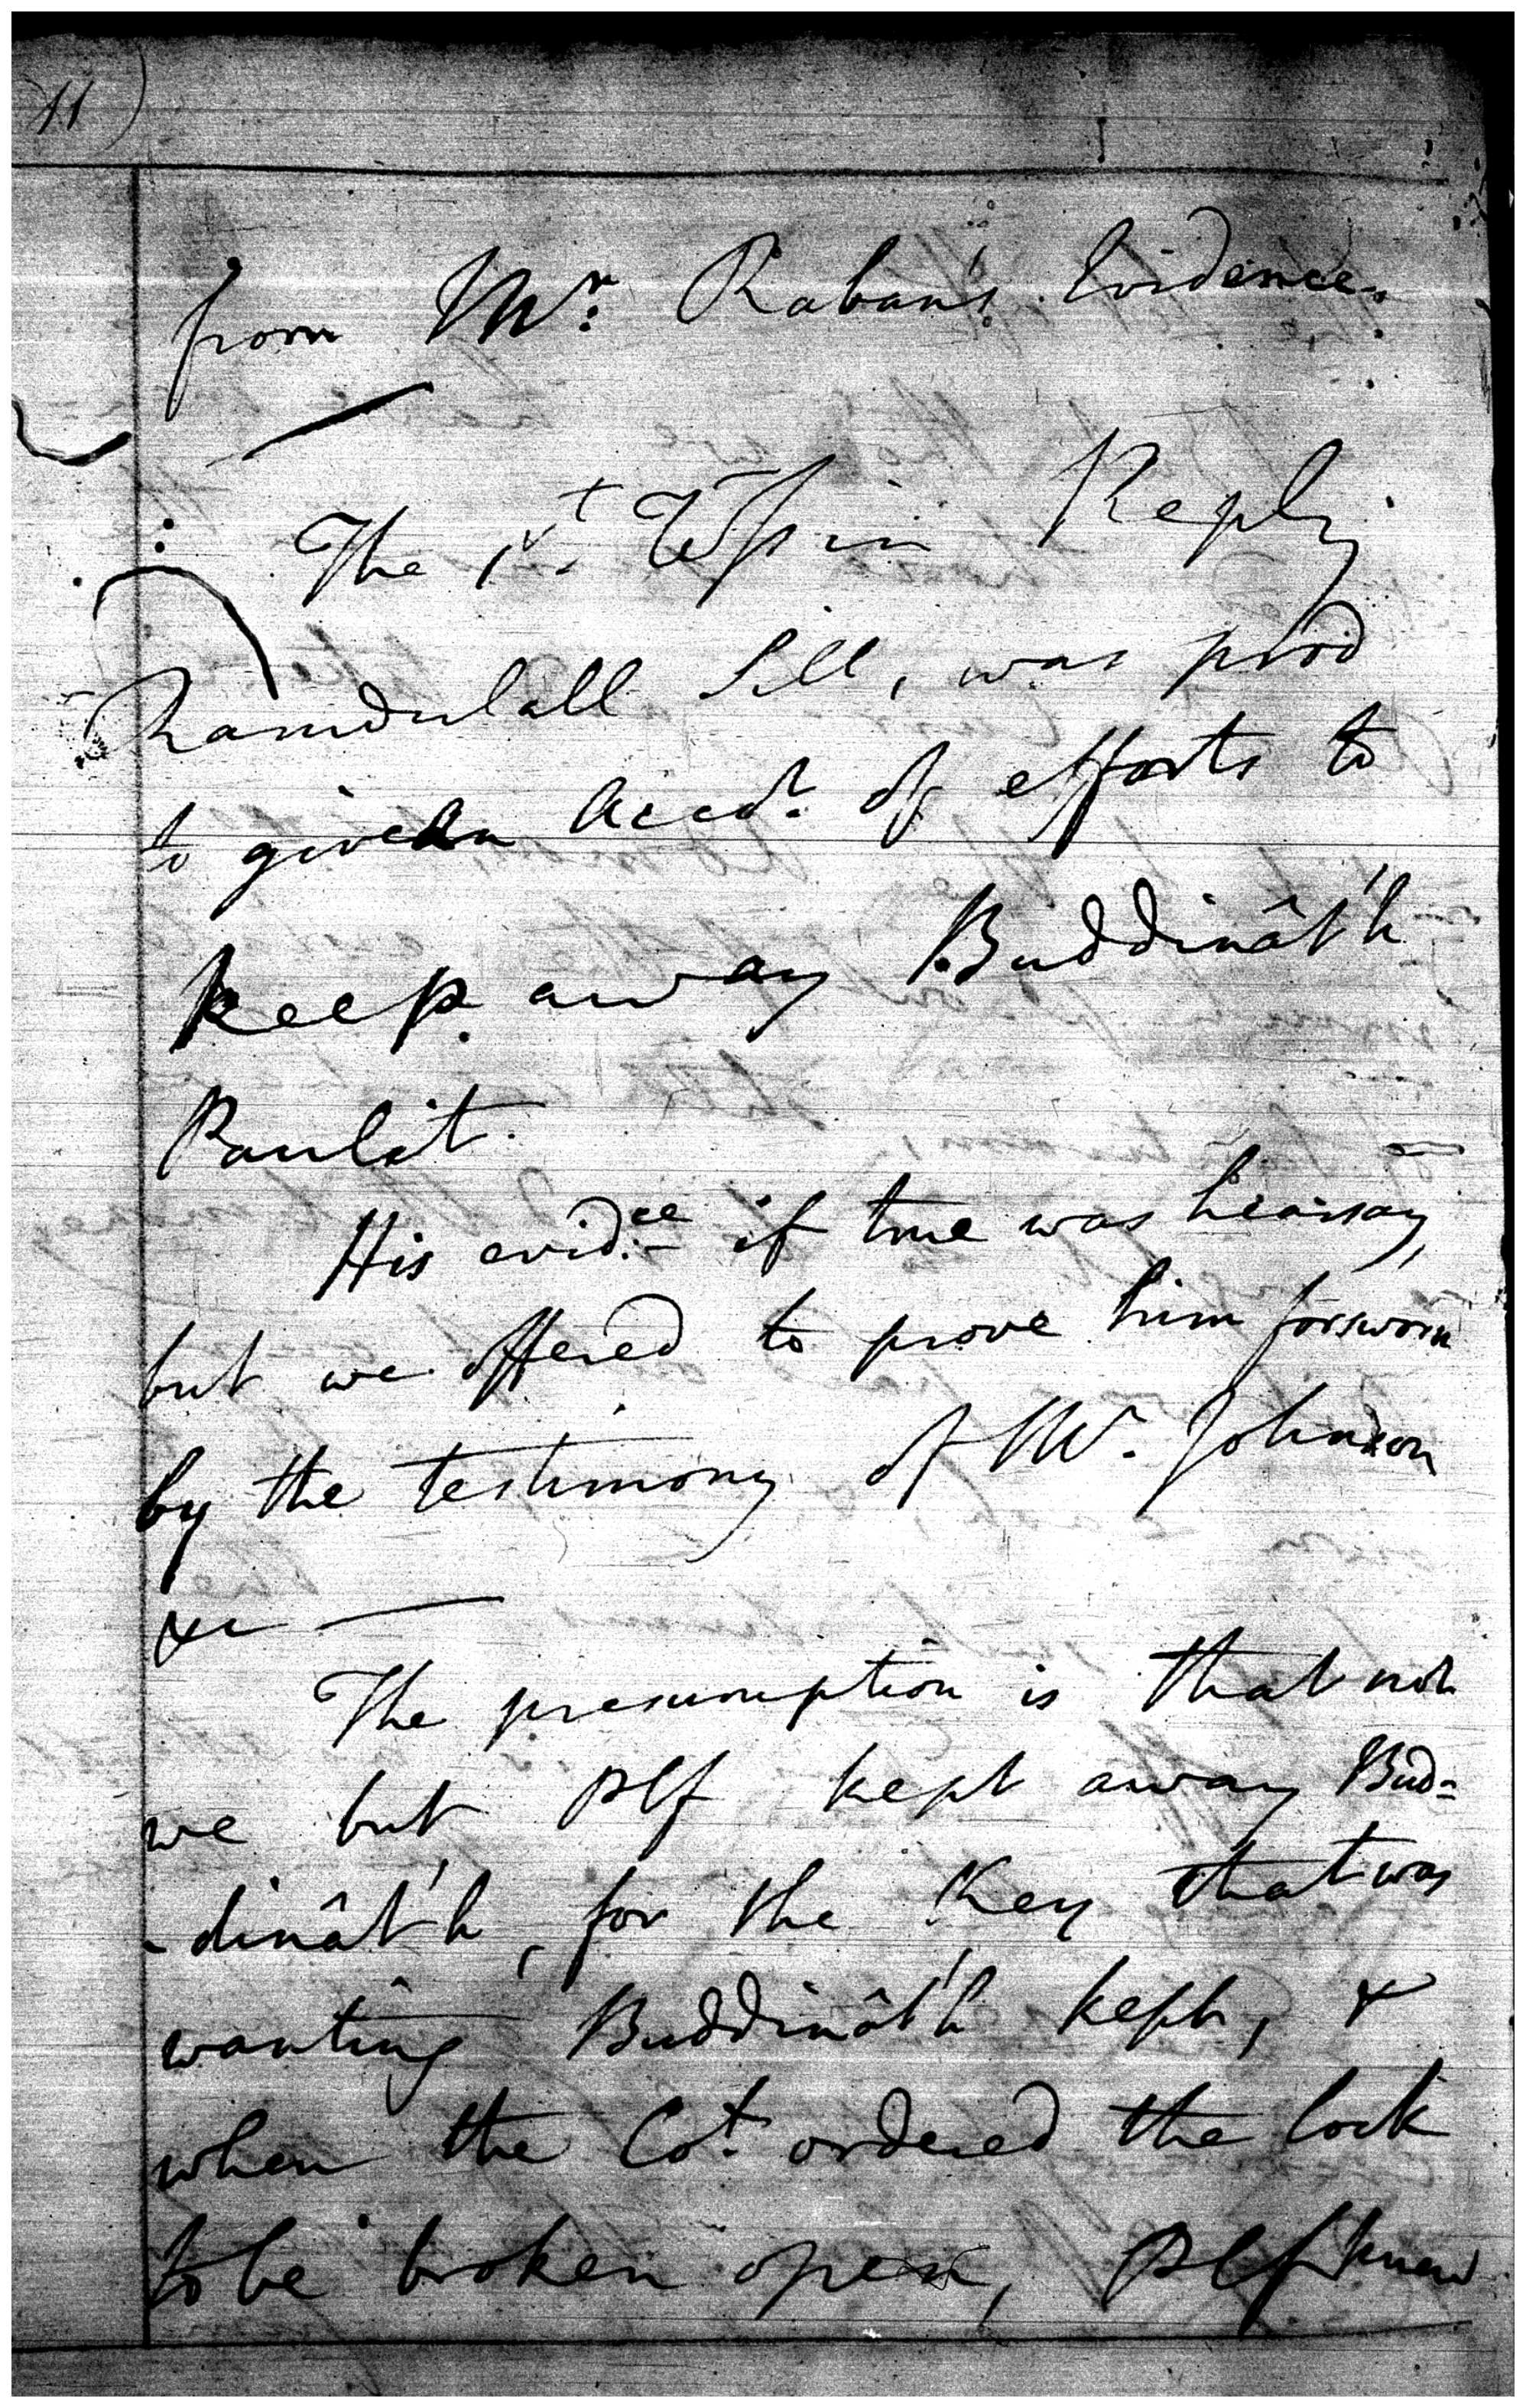 11)
from Mr. Raban's Evidence.
The 1st Wss in Reply
Ramdulall Sill, was prod
to give an Acct. of efforts to
keep away Buddinât'h
Paulit.
His evidce if true was hearsay,
but we offered to prove him forsworn
by the testimony of Mr. Johnson
&c
The presumption is that not
we but Plf kept away Bud=
-dinât'h, for the Key that was
wanting Buddinât'h kept, &
when the Cot. ordered the lock
to be broken open, Plf knew